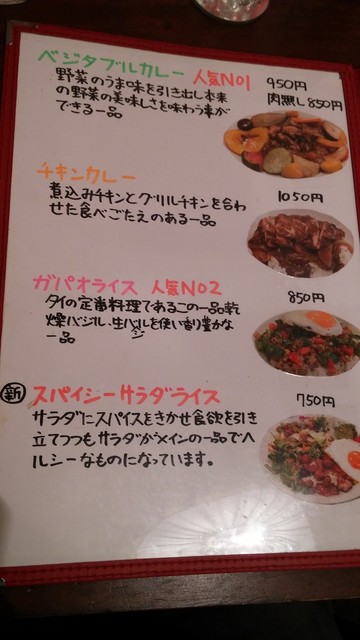 ベジタブルカレー 人気NO1 950円
野菜のうま味を引き出し本来 肉無し850円
の野菜の美味しさを味わう事が
できる一品
チキンカレー
煮込みチキンとグリルチキンを合わ 1050円
せた食べごたえのある一品
ガパオライス 人気NO2 850円
タイの定番料理であるこの一品乾
燥バジル、生バジルを使い香り豊かな
一品
新 スパイシーサラダライス 750円
サラダにスパイスをきかせ食欲を引き
立てつつもサラダがメインの一品でヘ
ルシーなものになっています。